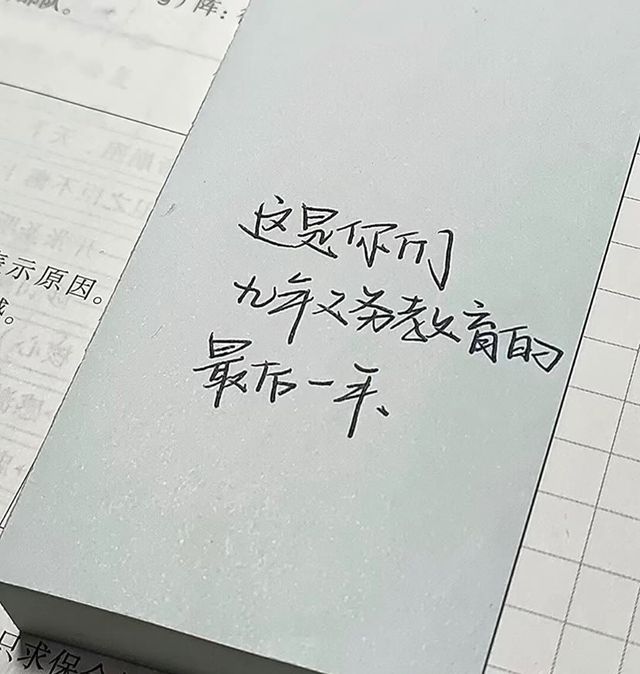 阵：
表示原因。
这是你们
九年义务教育的
最后一年、
只求保全